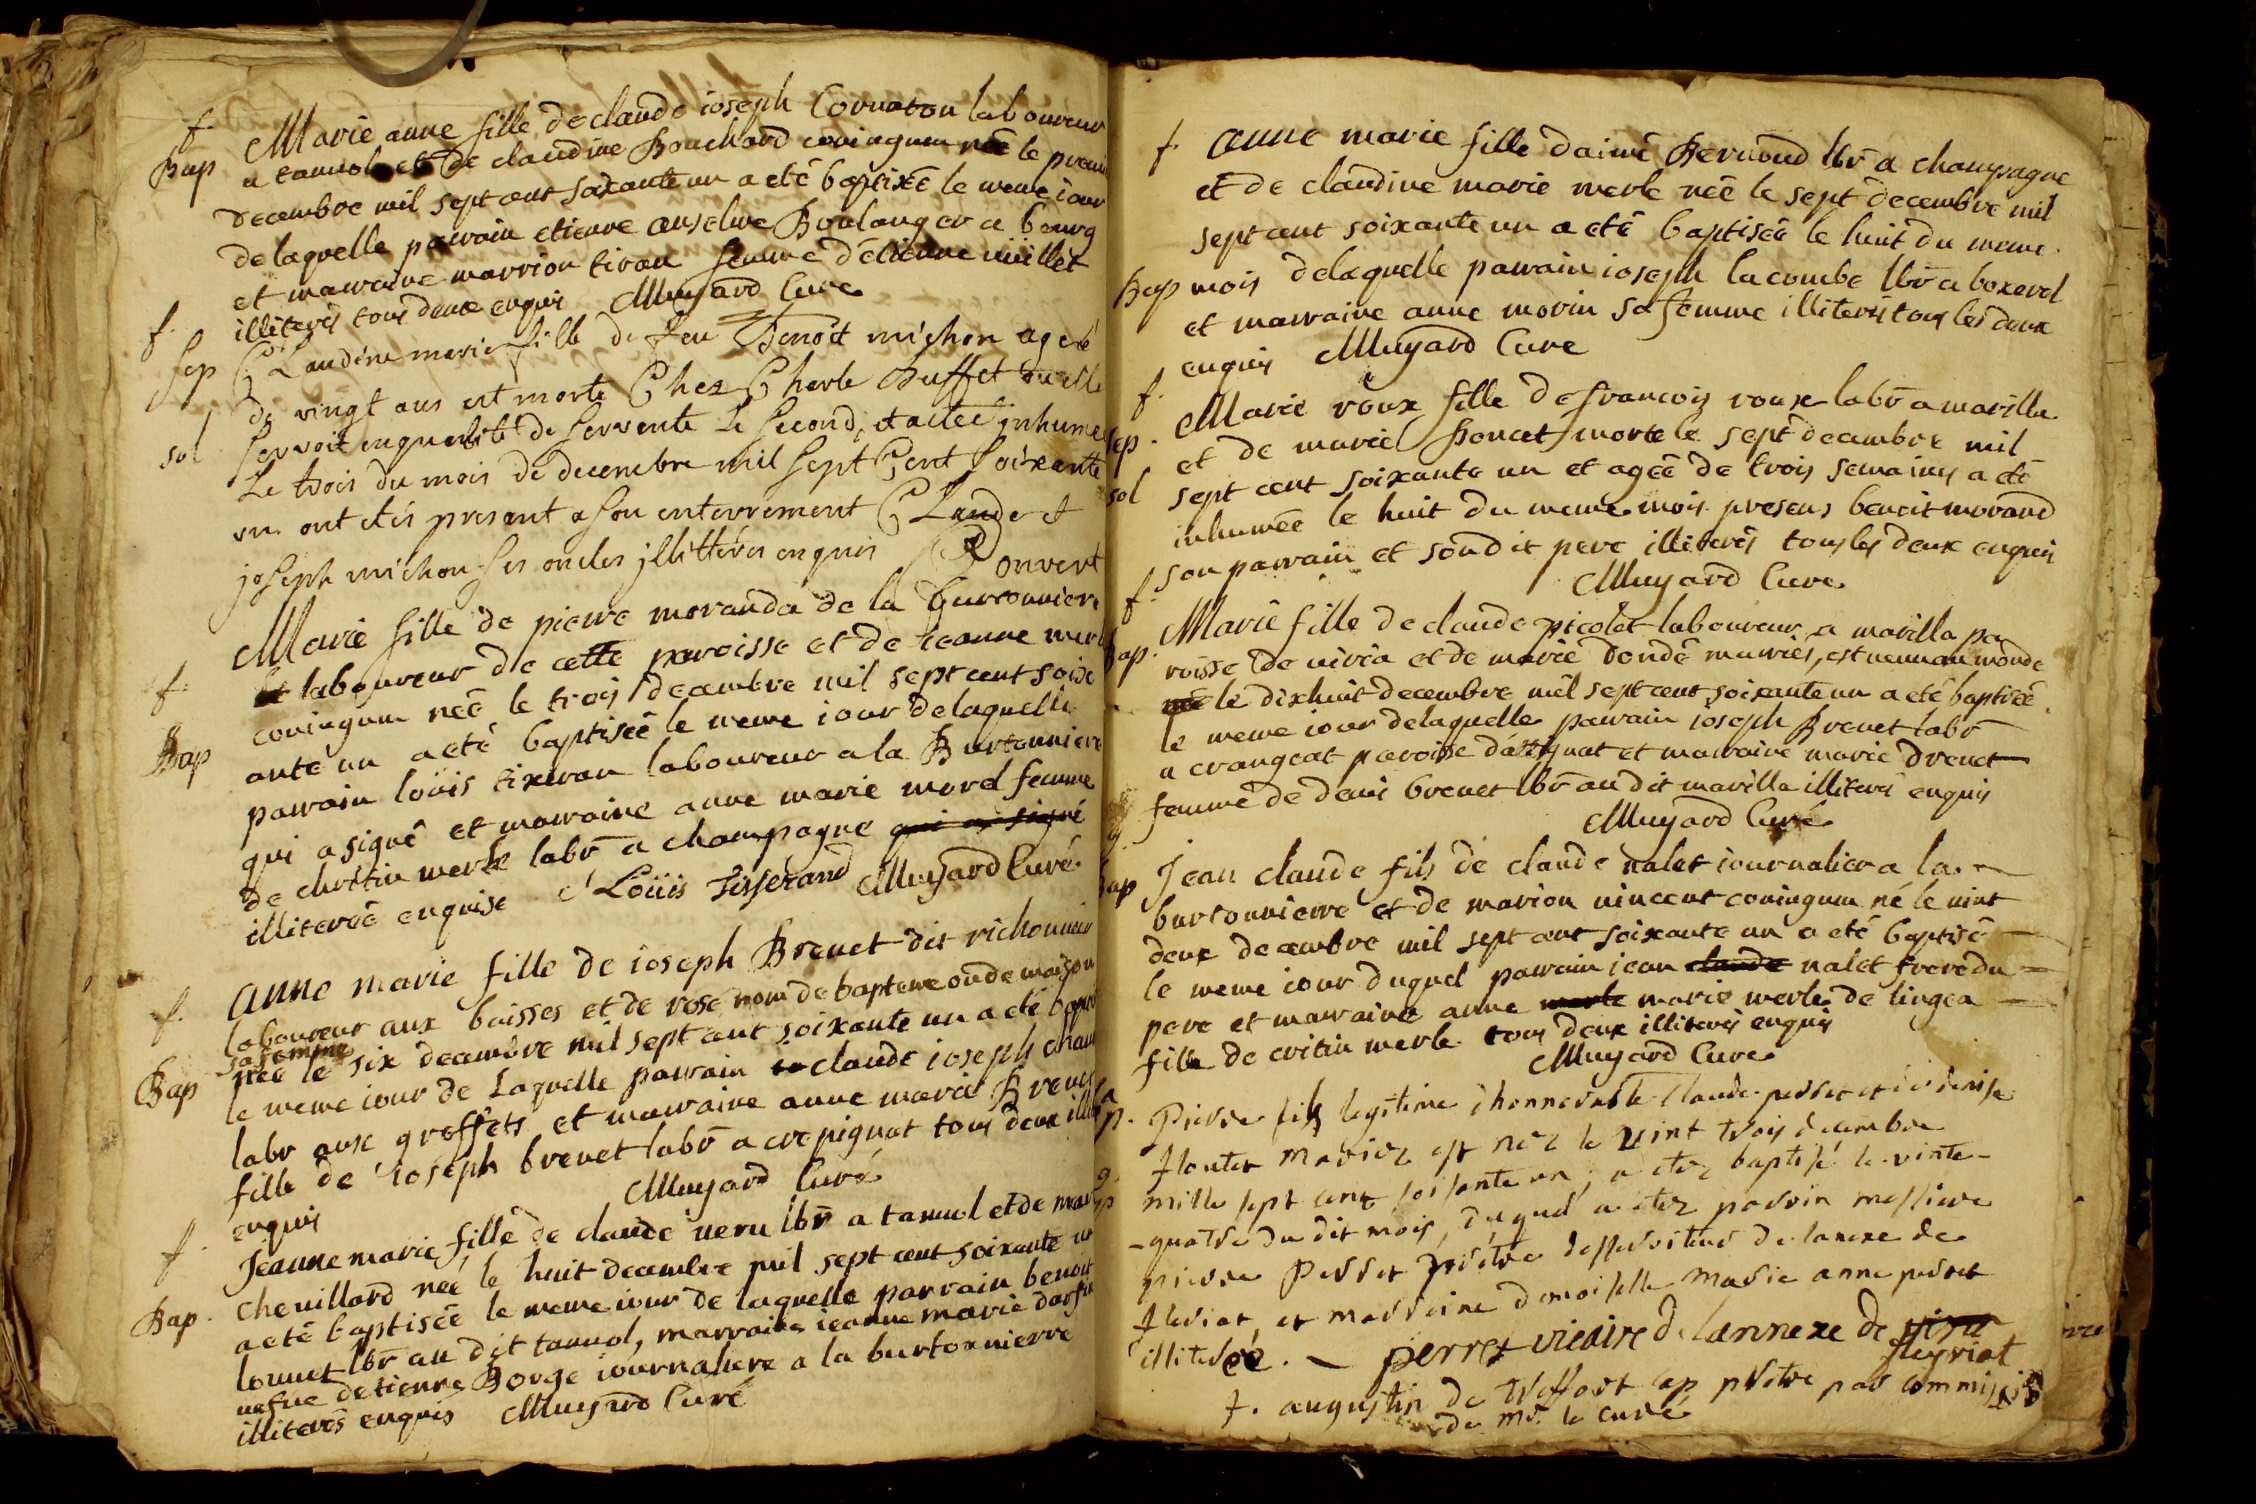 f. Marie anne fille de claude ioseph Cornaton laboureur
Bap a tannol et de claudine Bouchard coniugum née le premi
decembre mil sept cent soixante un a eté baptixée le meme iour
de laquelle parrain etienne anselme Boulanger a bourg
et marraine marrion tiran femme d'étienne millet
illiterés tous deux enquis Muyard Curé
f. Sep Claudine marie fille de feu Benoit michon ageé
de vingt ans est morte Chez Charle Buffet ou elle
sol servoit en qualité de servente Le second, et a eteé inhumeé
Le trois du mois de decembre mil Sept Cent Soixante
un. ont etés present a son enterrement Claude et
joseph michon ses oncles jllittérés enquis Convert
f. Marie fille de pierre morand a de la Burtonniere
laboureur de cette paroisse et de ieanne
coniugum née le trois decembre mil sept cent soix
Bap ante un a eté baptisée le meme iour de laquelle
parrain loüis tixeran laboureur a la Burtonniere
qui a signé et marraine anne marie morel femme
de christin merle labr̄ a champagne qui a signé
illiterée enquise Loüis Tisserand Muyard Curé
f. anne marie fille de ioseph Brevet dit richonnier
laboureur aux boisses et de rose nom de bapteme ou de maison
sa femme
Bap née le six decembre mil sept cent soixante un a eté bapti
le meme iour de Laquelle parrain claude ioseph
labr aux greffets et marraine anne marie Brevet
fille de ioseph brevet labr̄ a crepignat tous deux ill
enquis Muyard Curé
f. Jeanne marie fille de claude lbr̄ a tannol et de
Chevillard née le huit decembre mil sept cent soixante un
Bap. a eté baptisée le meme iour de laquelle parrain benoit
lbr̄ au dit tannol, marraine ieanne marie
d'etienne Borge iournaliere a la burtonnierre
illiterés enquis Muyard Curé
f. anne marie fille d'aimé Bernoud lbr̄ a champagne
et de claudine marie merle née le sept decembre mil
sept cent soixante un a eté baptisée le huit du meme
Bap mois de laquelle parrain ioseph lacombe lbr̄ a boxerel
et marraine anne morin sa femme illiterés tous les deux
enquis Muyard Curé
f. Marie roux fille de francois roux labr̄ a marilla
sep. et de marie Poncet morte le sept decembre mil
sol sept cent soixante un et agée de trois semaines a eté
inhumée le huit du meme mois presens benoit morand
son parrain et son dit pere illiterés tous les deux enquis
Muyard Curé
f. Marie fille de claude picolet laboureur a marilla pa
Bap. roisse de viria et de marie dondé mariés, est venu au monde
née le dixhuit decembre mil sept cent soixante un a eté baptisée
le meme iour de laquelle parrain ioseph Brevet labr̄
a crangeat paroisse d'attignat et marraine marie drevet
femme de denis brevet lbr̄ au dit marilla illiterés enquis
Muyard Curé
g. Bap Jean claude fils de claude nalet iournalier a la
burtonnierre et de marion vincent coniugum né le vint
deux decembre mil sept cent soixante un a eté baptisé
le meme iour duquel parrain iean claude nalet frere du
pere et marraine anne merle marie merle de lingea
fille de critin merle tous deux illiterés enquis
Muyard Curé
Pierre fils legitime d'honnorable Claude perret et de denise
flontet mariez est nez le vint trois decembre
mille sept cent soissante un, a etez baptisé le vinte
-quatre du dit mois, duquel a etez parrin messiere
pierre perret pretre desserviteur de lanexe de
fleriat, et marreine demoiselle marie anne perret
illiterée. - perret vicaire de lannexe de viria
fleyriat
f. augustin de treffort cap prêtre par commission
de mr. le curé